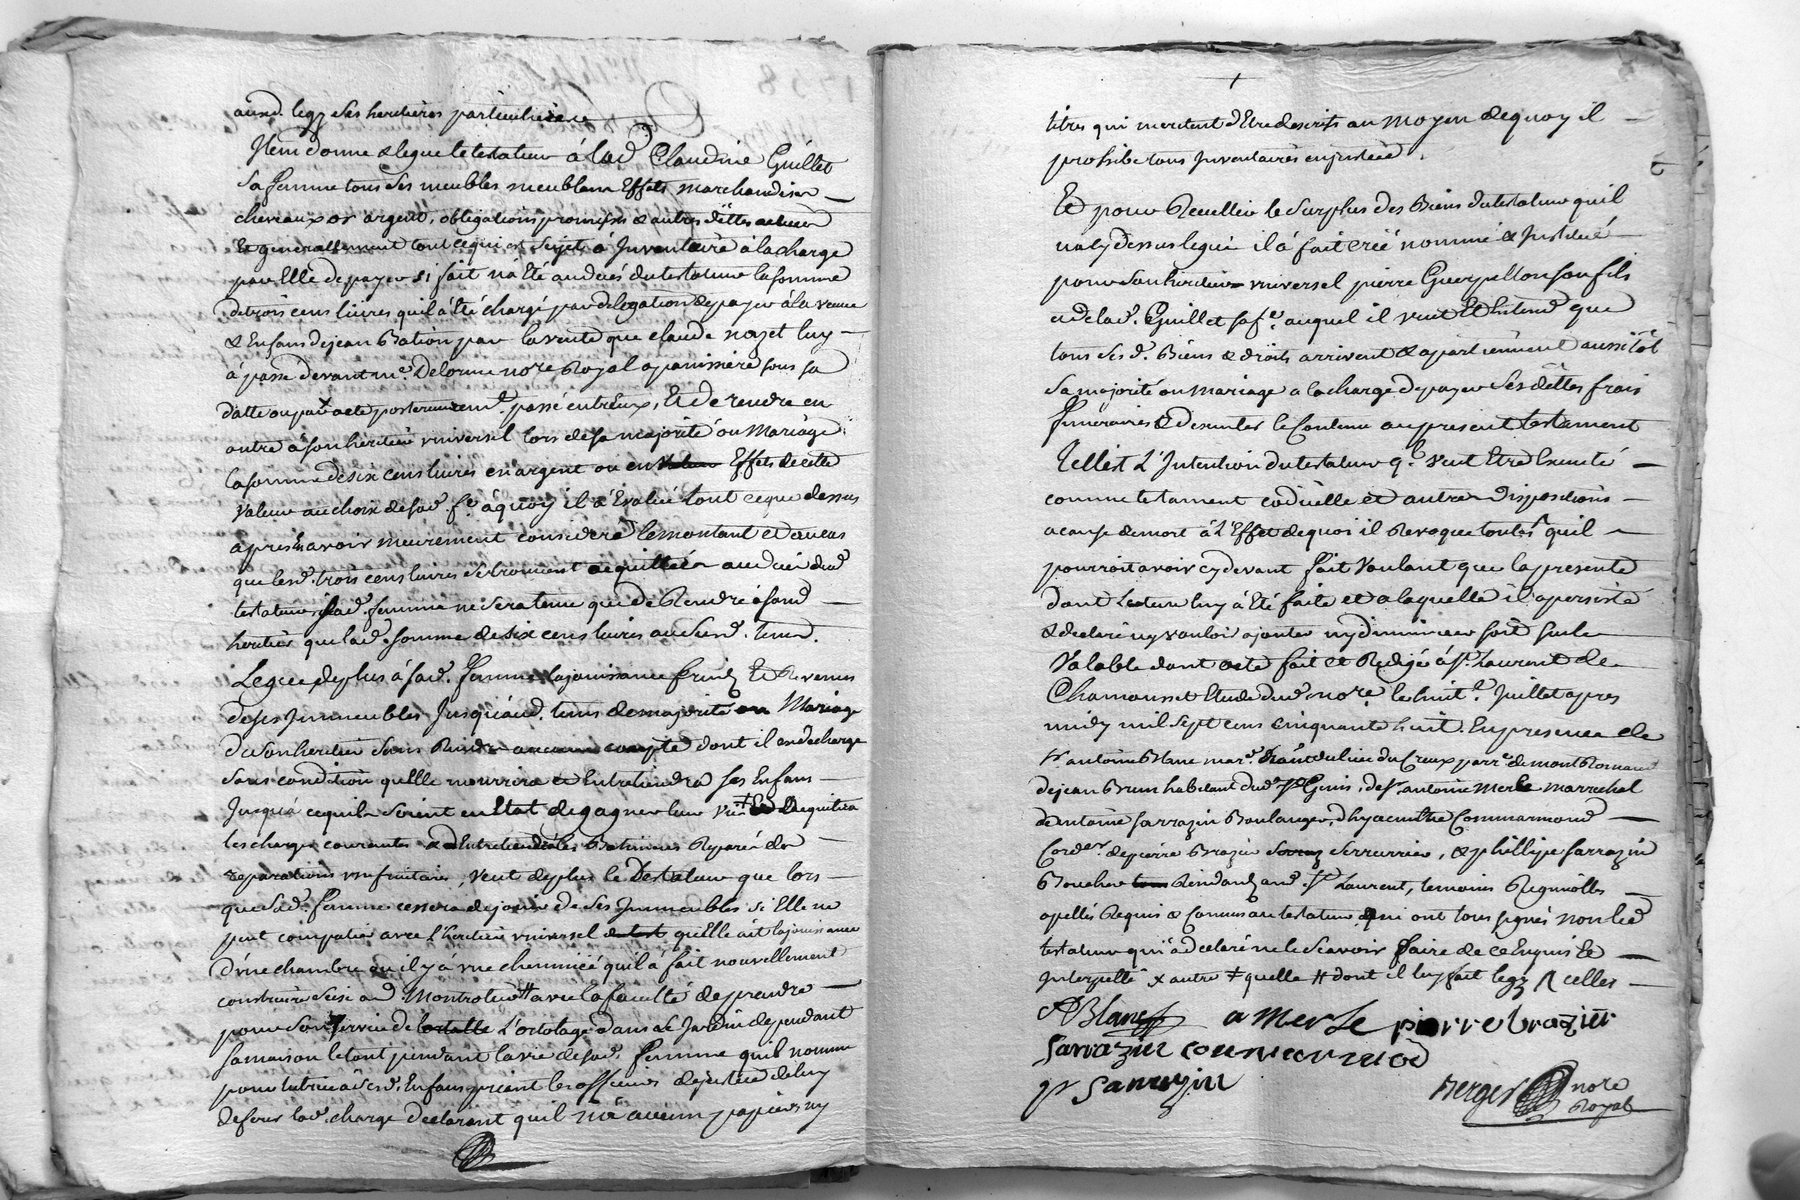 auxd. legz ses heritières particulieres
Item donne & legue le testateur à lad. Claudine Guillet
sa femme tous ses meubles meublans Effets marchandises
chevaux or argent, obligations promesses & autres dettes actives
Et generallement tout ce qui est sujet à Inventaire à la charge
par Elle de payer si fait n'a Eté au decés du testateur la somme
de trois cens livres qu'il à Eté chargé par delegation de payer à la veuve
& Enfans de jean Bation par la vente que claude nozet luy
à passé devant me. Delorme nore. Royal a panissiere sous sa
datte ou par x acte posterieurement passé entr'Eux, Et de rendre en
outre à son heritier vniversel lors de sa majorité ou Mariage
la somme de six cens livres en argent ou en valeur Effets de cette
valeur au choix de sad. fe. à quoy il à Evalué tout ce que dessus
apres En avoir meurement consideré le montant et au cas
que lesd. trois cens livres se trouvent acquittées au decés dud.
testateur, sad. femme ne sera tenue que de Rendre à sond.
heritier que lad. somme de six cens livres au susd. tems.
Legue de plus à sad. femme la jouissance fruits Et Revenus
de ses Immeubles Jusqu'aud. tems de majorité ou Mariage
de son heritier sans Rendre aucun compte dont il en decharge
sous condition qu'Elle nourrira et Entretiendra ses Enfans
Jusqu'à ce qu'ils soient en Etat de gagner leur vie ‡ Et d'acquitter
les charges courantes & d'Entretenir les Batimens Reparés de
reparations vsufruitaires, veut de plus le Testateur que lors
que sad. femme cessera de jouir de ses Immeubles si Elle ne
peut compatir avec l'heritier vniversel qu'Elle ait la jouissance
d'une chambre ou il y à vne cheminée qu'il à fait nouvellement
construire sise aud. Montrotier # avec la faculté de prendre
pour son service de l'ortolage dans le Jardin dependant
sa maison le tout pendant la vie de sad. femme qu'il nomme
pour tutrice à sesd. Enfans priant les officiers de justice de luy
deferer lad. charge declarant qu'il n'a aucun papiers ny
titres qui meritent d'Etre descrits au moyen de quoy il
prohibe tous Inventaires en justice.
Et pour Recuillir le surplus des Biens du testateur qu'il
n'a cy dessus legué il à fait créé nommé & Institué
pour son heritier vniversel pierre Guerpillon son fils
& de lad. Guillet sa fe. auquel il veut Et Entend que
tous ses d. Biens & droits arrivent & apartiennent aussitôt
sa majorité ou mariage a la charge de payer ses dettes frais
funeraires & d'executer le Contenu au present testament
Telle Est L'Intention du testateur qe. veut Etre Executé
comme testament codicille et autres dispositions
a cause de mort à l'Effet de quoi il Revoque toutes ʌ qu'il
pourroit avoir cy devant fait Voulant que la presente
dont lecture luy à Eté faite et a laquelle il a persisté
& declaré ny vouloir ajouter ny diminuer soit seule
Valable dont acte fait et Redigé à St. Laurent de
Chamousset Etude dud. nore. le huite. Juillet apres
midy mil sept cens cinquante huit. En presence de
Sr. antoine Blanc mard. du lieu du Creux parr.e de montRomant
de jean Brun habitant dud. St. Genis, de Sr. antoine Merle marrechal
de antoine sarrazin Boulanger, d'hyacinthe Commarmond
Corder. de pierre Brazier serrurier, & phillipe sarrazin
Boucher Residants aud. St. Laurent, temoins Requis &
apellés Requis & Connus au testateur qui ont tous signés non led.
testateur qui à declaré ne le sçavoir faire de ce Enquis Et
Interpellé x autre ‡ quelle # dont il luy fait legz ʌ celles
ABlanc a Merle pierre brazier
Sarrazin commarmond
pr Sarrazin
Berger nore
Royal